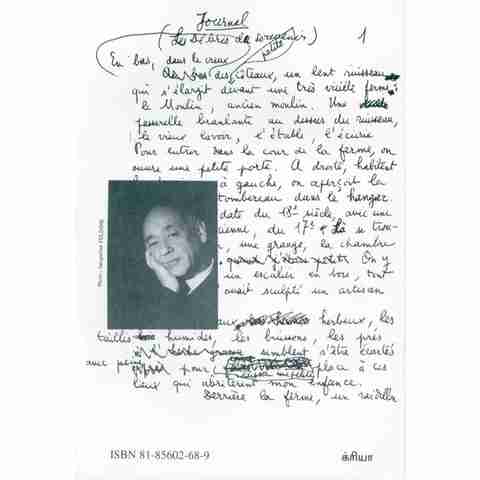 Journal
(Les débris de souvenirs) 1
petite
En bas, dans le creux
des coteaux, un lent ruisseau
qui s'élargit devant une très vieille ferme :
le Moulin, ancien moulin. Une
passerelle branlante au dessus du ruisseau,
le vieux lavoir, l'étable, l'écurie
Pour entrer dans la cour de la ferme, on
ouvre une petite porte. A droite, habitent
à gauche, on aperçoit le
tombereau dans le hangar
date du 18e siècle, avec une
du 17e Là se trou-
, une grange, la chambre
On y
un escalier en bois, dont
avait sculpté un artisan
herbeux, les
tailles humides, les buissons, les prés
semblent s'être écartés
avec pour place à ces
lieux qui abritèrent mon enfance.
Derrière la ferme, un raidillon
Photo : Jacqueline
ISBN 81-85602-68-9
க்ரியா